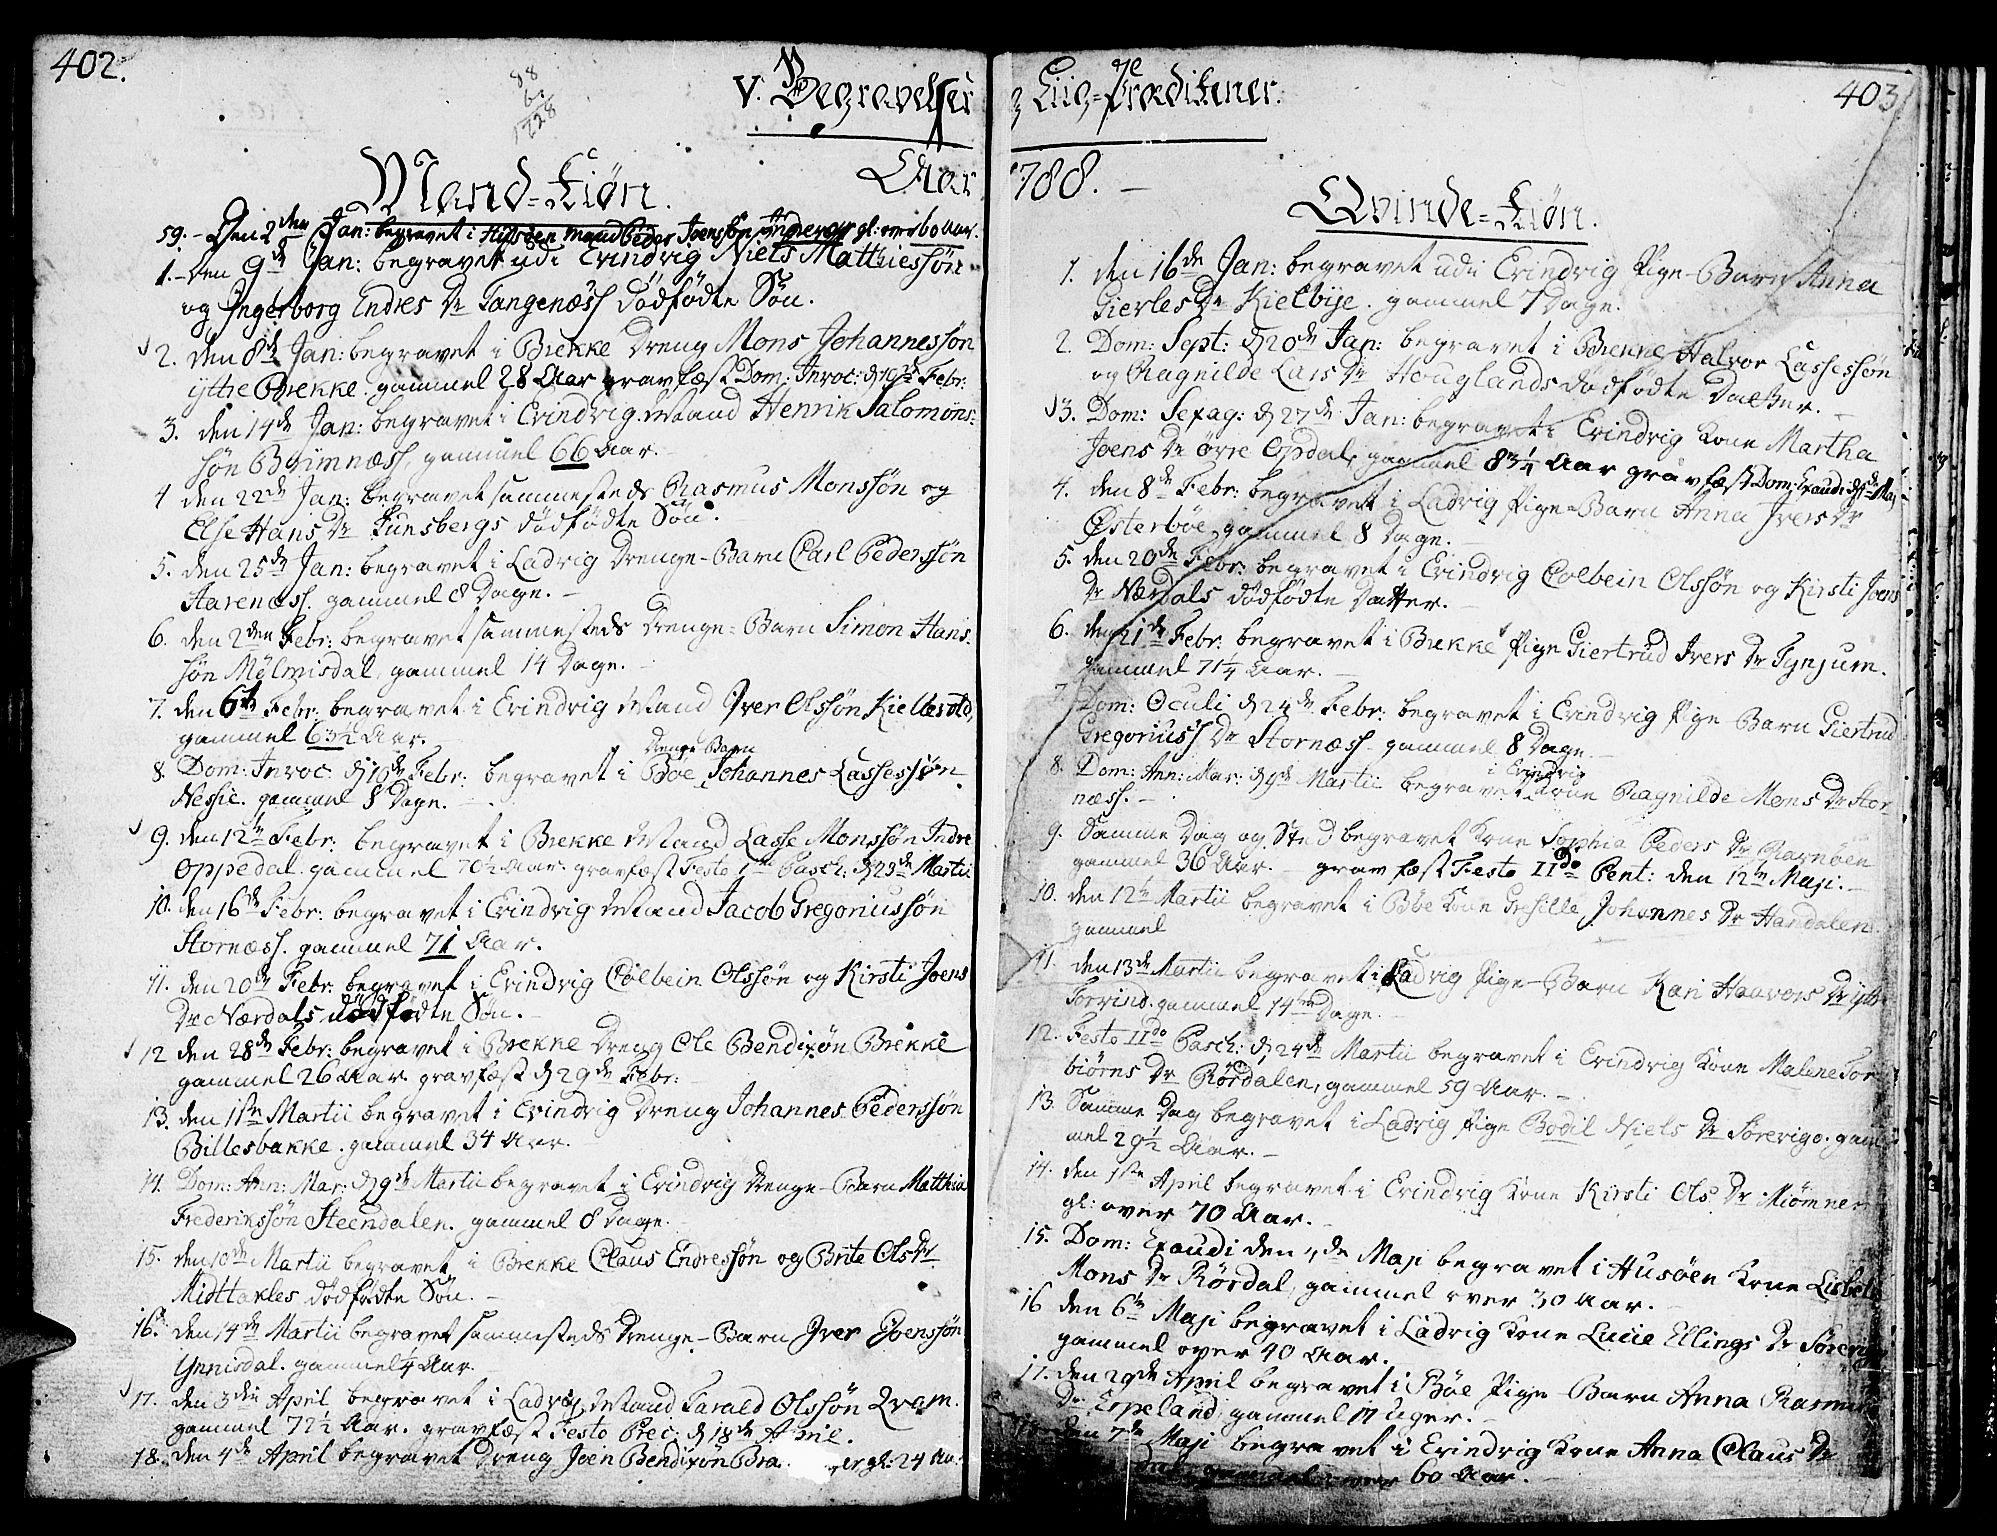 402.
88
60
1728
V. Begravelser
Aar
Mand-Kiøn.
59. Den 2den Jan: begravet i gl: over 60 Aar.
1. Den 9de Jan: begravet udi Evindvig Niels Matthiessøn
og Ingerborg Endres Dr Tangenæss dödfödte Søn.
2. den 8de Jan: begravet i Brekke Dreng Mons Johannessøn
ÿttre Brekke, gammel 28 Aar gravfæst Dom: Invoc: d 10de Febr:
3. den 14de Jan: begravet i Evindvig Mand Henrik Salomons-
søn Brÿmnæss, gammel 66 Aar.
4 den 22de Jan: begravet sammesteds Rasmus Monssön og
Else Hans Dr Kunsbergs dödfödte Søn.
5. den 25de Jan: begravet i Ladvig Drenge-Barn Carl Pederssøn
Aarenæss. gammel 8 Dage.
6. den 2den Febr: begravet sammesteds Drenge-Barn Simon Hans-
søn Mølmisdal, gammel 14 Dage.
7. den 6te Febr: begravet i Evindvig Mand Iver Olssøn Kiellevold,
gammel 63½ Aar.
8. Dom: Invoc: d 10de Febr: begravet i Böe Drenge Barn Johannes Lassessøn
Nessie. gammel 8 Dage.
9. den 12te Febr: begravet i Brekke Mand Lasse Monssøn Indre
Oppedal. gammel 70½ Aar. gravfæst Festo Pasch: d 23de Martii
10. den 16de Febr: begravet i Evindvig Mand Jacob Gregoriussøn
Stornæss. gammel 71 Aar.
11. den 20de Febr: begravet i Evindvig Colbein Olssøn og Kirsti Joens
Dr Nærdals dödfödte Søn.
12 den 28de Febr: begravet i Brekke Dreng Ole Bendixøn Brekke
gammel 26 Aar. gravfæst d 29de Febr:
13. den 1ste Martii begravet i Evindvig Dreng Johannes Pederssøn
Billesbakke. gammel 34 Aar.
14. Dom: Ann: Mar: d 9de Martii begravet i Evindvig Drenge-Barn Matthias
Frederikssøn Steendalen. gammel 8 Dage.
15. den 10de Martii begravet i Brekke Claus Endressøn og Brite Ols Dr
Midttakles dödfødte Søn.
16. den 14de Martii begravet sammesteds Drenge-Barn Iver Joenssøn
Ynnisdal. gammel ¼ Aar.
17. den 3die April begravet i Ladvig Mand Farald Olssøn Qvam.
gammel 72½ Aar. gravfæst Festo Prec: d 18de April.
18. den 4de April begravet Dreng Joen Bendixøn gl: 24 Aar
403
g Liig-Prædikener.
1788.
Qvinde-Kiøn.
1. den 16de Jan: begravet udi Evindvig Pige-Barn Anna
Gierles Dr Kielbye. gammel 7 Dage.
2. Dom: Sept: d 20de Jan: begravet i Brekke Halvor Lassessøn
og Ragnilde Lars Dr Houglands dödfödte Datter.
3. Dom: Sexag: d 27de Jan: begravet i Evindvig Kone Martha
Joens Dr øvre Opdal, gammel 83¼ Aar gravfæst Dom: Exaudi d 4de Maj
4. den 8de Febr: begravet i Ladvig Pige-Barn Anna Ivers Dr
Østerböe gammel 8 Dage.
5. den 20de Febr: begravet i Evindvig Colbein Olssøn og Kirsti Joens
Dr Nærdals dödfödte Datter.
6. den 21de Febr: begravet i Brekke Pige Giertrud Ivers Dr Tynjum.
gammel 71¼ Aar.
7. Dom: Oculi d 24de Febr: begravet i Evindvig Pige Barn Giertrud
Gregoriuss Dr Stornæss. gammel 8 Dage.
8. Dom: Ann: Mar: d 9de Martii begravet i Evindvig Kone Ragnilde Mons Dr Stor-
næss.
9. Samme Dag og Sted begravet Kone Sophia Peders Dr Ravnøen
gammel 36 Aar. gravfæst Festo IIdo Pent: den 12te Maji.
10. den 12te Martii begravet i Böe Kone Johannes Dr Handalen
gammel
11. den 13de Martii begravet i Ladvig Pige-Barn Kari Haavors Dr ÿttr
Torvind. gammel 14ten Dage.
12. Festo IIdo Pasch: d 24de Martii begravet i Evindvig Kone Malene Tor-
biörns Dr Rördalen, gammel 59 Aar.
13. Samme Dag begravet i Ladvig Pige Bodil Niels Dr Sørevige. gam-
mel 29½ Aar.
14. den 1ste April begravet i Evindvig Kone Kirsti Ols Dr Miömner
gl: over 70 Aar.
15. Dom: Exaudi den 4de Maji begravet i Husöen Kone Lisbet
Mons Dr Rördal, gammel over 30 Aar.
16 den 6te Maji begravet i Ladvig Kone Lucie Ellings Dr Sörevige
gammel over 40 Aar.
17. den 29de April begravet i Böe Pige-Barn Anna Rasmus
Dr Erpeland, gammel 17 Uger.
18. den 7de Maji begravet i Evindvig Kone Anna Claus Dr
gammel over 60 Aar.